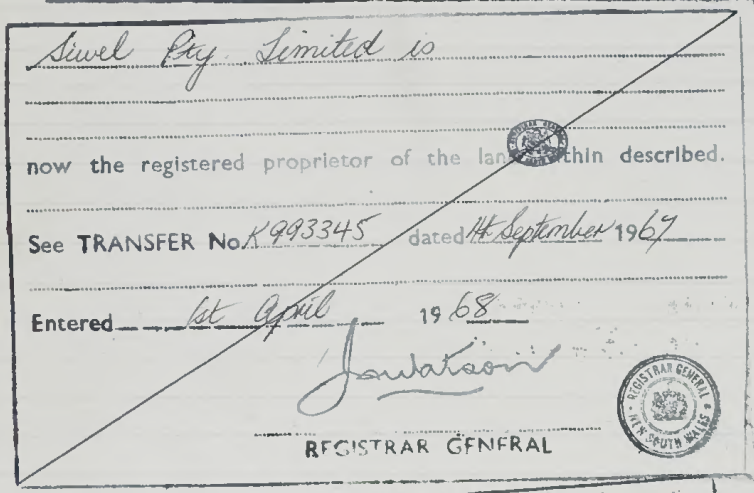 Siwel Pty. Limited is
now the registered proprietor of the land within described.
See TRANSFER No. K993345 dated September 1967
Entered 1st April 1968
J Watson
REGISTRAR GENERAL
REGISTRAR GENERAL
NEW SOUTH WALES